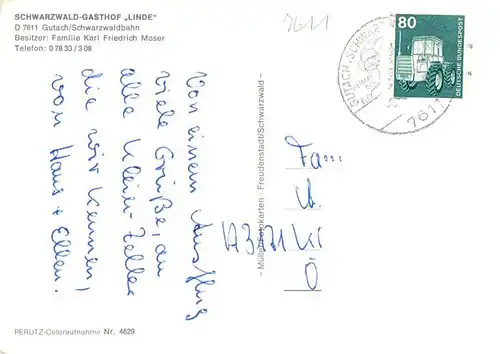 SCHWARZWALD-GASTHOF „LINDE"
D 7611 Gutach/Schwarzwaldbahn
Besitzer: Familie Karl Friedrich Moser
Telefon: 0 78 33 / 3 08
7611
80
DEUTSCHE BUNDESPOST
GUTACH, SCHWARZW
7611
Von einem Ausflug
viele Grüße, an
alle Klein-Zeller
die wir kennen!
von Hans + Ellen.
– Müller-Fotokarten · Freudenstadt/Schwarzwald –
Fam
A 3171 Kl
Ö
PERUTZ-Coloraufnahme Nr. 4629